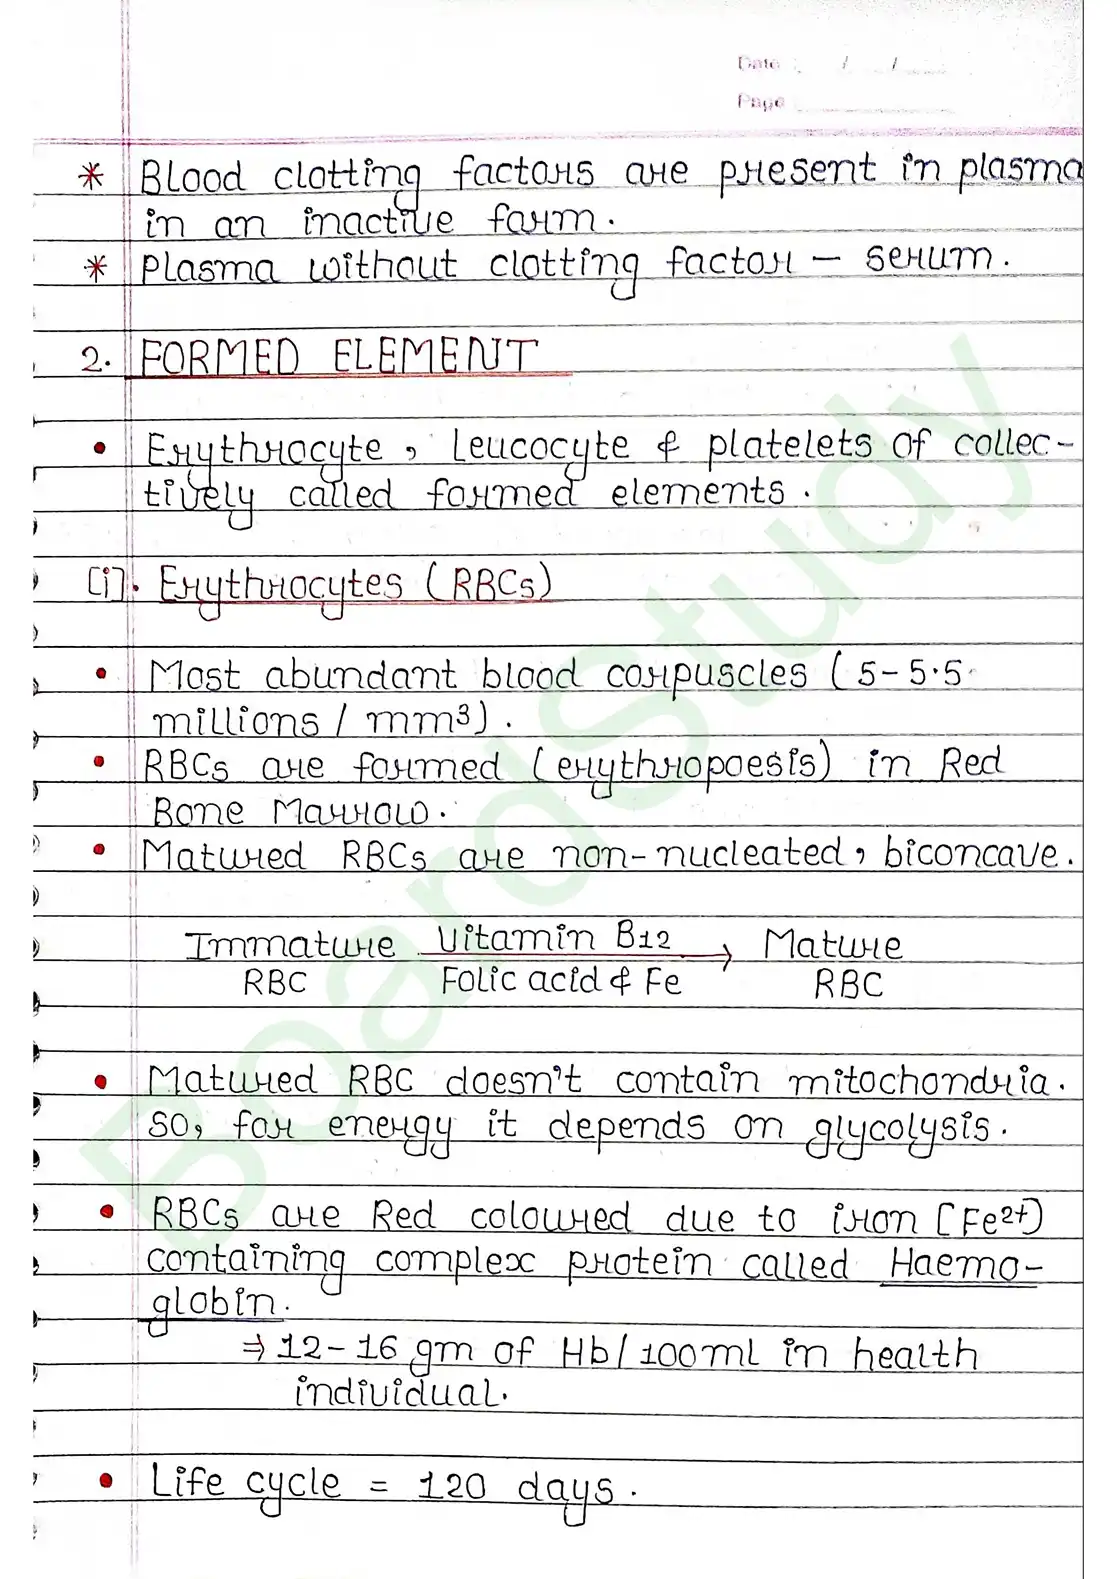 Date : / /
Page
* Blood clotting factors are present in plasma
in an inactive form.
* Plasma without clotting factor - serum.
2. FORMED ELEMENT
• Erythrocyte, Leucocyte & platelets of collec-
tively called formed elements.
[i]. Erythrocytes (RBCs)
• Most abundant blood corpuscles (5-5.5
millions / mm³).
• RBCs are formed (erythropoesis) in Red
Bone Marrow.
• Matured RBCs are non-nucleated, biconcave.
Immature Vitamin B12 → Mature
RBC Folic acid & Fe RBC
• Matured RBC doesn't contain mitochondria.
so, for energy it depends on glycolysis.
• RBCs are Red coloured due to iron [Fe2+)
containing complex protein called Haemo-
globin.
⇒ 12-16 gm of Hb/100ml in health
individual.
• Life cycle = 120 days.
BoardStudy